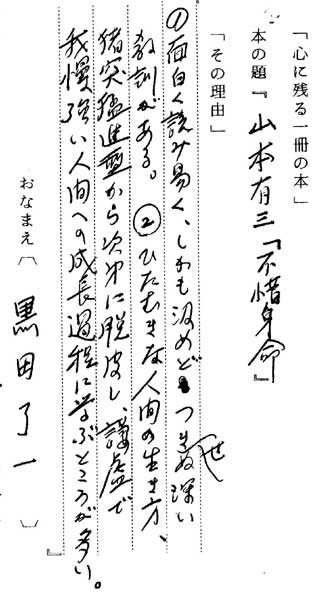 「心に残る一冊の本」
本の題『山本有三「不惜身命』
「その理由」
①面白く読み易く、しかも汲めどつきせぬ深い
教訓がある。②ひたむきな人間の生き方、
猪突猛進型から次第に脱皮し、謙虚で
我慢強い人間への成長過程に学ぶところが多い。
』
おなまえ〔黒田了一〕